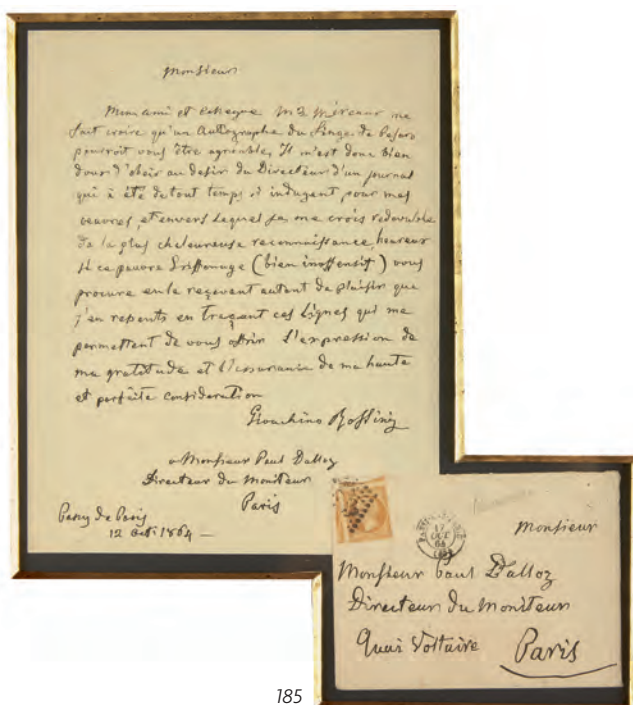 Monsieur
Mon ami et collegue Mr Méreaux me
fait croire qu'un Autographe du Singe de Pesaro
pourroit vous être agreable, Il m'est donc bien
doux d'obeir au desir du Directeur d'un journal
qui à été de tout temps si indugent pour mes
oeuvres, et envers lequel je me crois redevable
de la plus cheleureuse reconnaissance, heureux
si ce pauvre Griffonage (bien inoffensif) vous
procure en le reçevant autant de plaisir que
j'en resents en traçant ces lignes qui me
permettent de vous offrir l'expression de
ma gratitude et l'assurance de ma haute
et parfaite consideration
Gioachino Rossini
a Monsieur Paul Dalloz
Directeur du Moniteur
Paris
Passy de Paris
12 Oct. 1864 —
17
OCT
64
Monsieur
Monsieur Paul Dalloz
Directeur du Moniteur
Quai Voltaire Paris
185